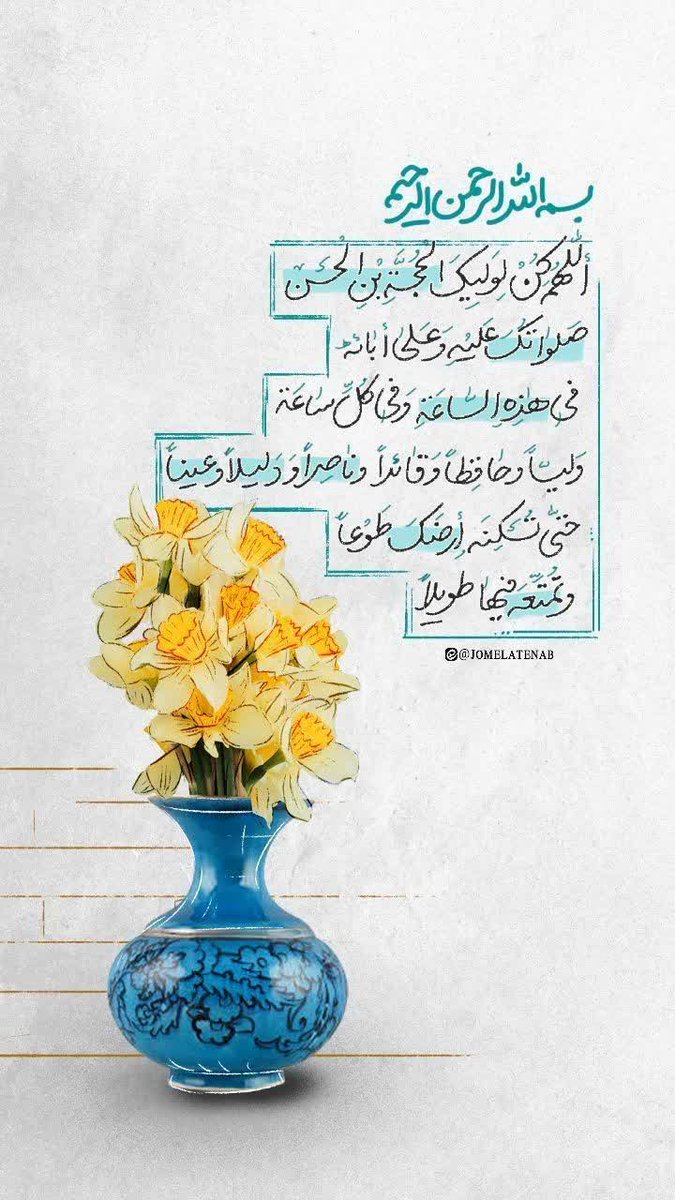 بسم الله الرحمن الرحیم
أَللّهُمَّ كُنْ لِوَلِيِّكَ الْحُجَّةِ بْنِ الْحَسَن
صَلَواتُكَ عَلَيْهِ وَعَلى آبائه
في هذِهِ السّاعَةِ وَفي كُلِّ ساعَة
وَلِيّاً وَحافِظاً وَقائداً وناصِراً وَدَليلاً وَعيناً
حَتّى تُسْكِنَه أرضَكَ طَوْعاً
وَتُمَتِّعَه فيها طويلاً
@JOMELATENAB